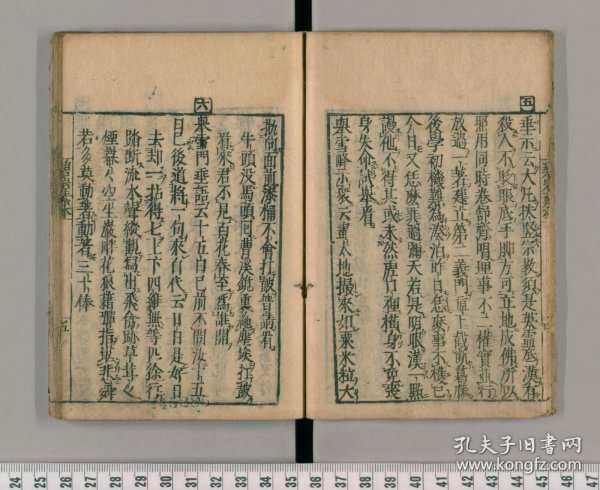 五
垂示云大凡扶竪宗教須是英靈底漢有
殺人不眨眼底手脚方可立地成佛所以
照用同時卷舒齊唱理事不二權實並行
放過一著建立第二義門直下截斷葛藤
後學初機難爲湊泊昨日恁麼事不獲已
今日又恁麼罪過彌天若是明眼漢一點
謾他不得其或未然虎口裡橫身不免喪
身失命試舉看
舉雪峰示衆云盡大地撮來如粟米粒大
抛向面前漆桶不會打皷普請看
牛頭没馬頭囘曹溪鏡裏絶塵埃打皷
看來君不見百花春至爲誰開
六
舉雲門垂語云十五日已前不問汝十五
日已後道將一句來自代云日日是好日
去却一拈得七上下四維無等匹徐行
踏斷流水聲縱觀寫出飛禽跡草茸々
煙羃々空生巖畔花狼藉彈指堪悲舜
若多莫動著動著三十棒
五
孔夫子旧书网
www.kongfz.com
24 25 26 27 28 29 30 31 32 33 34 35 36 37 38 39 40 41 42 43 44 45 46 47